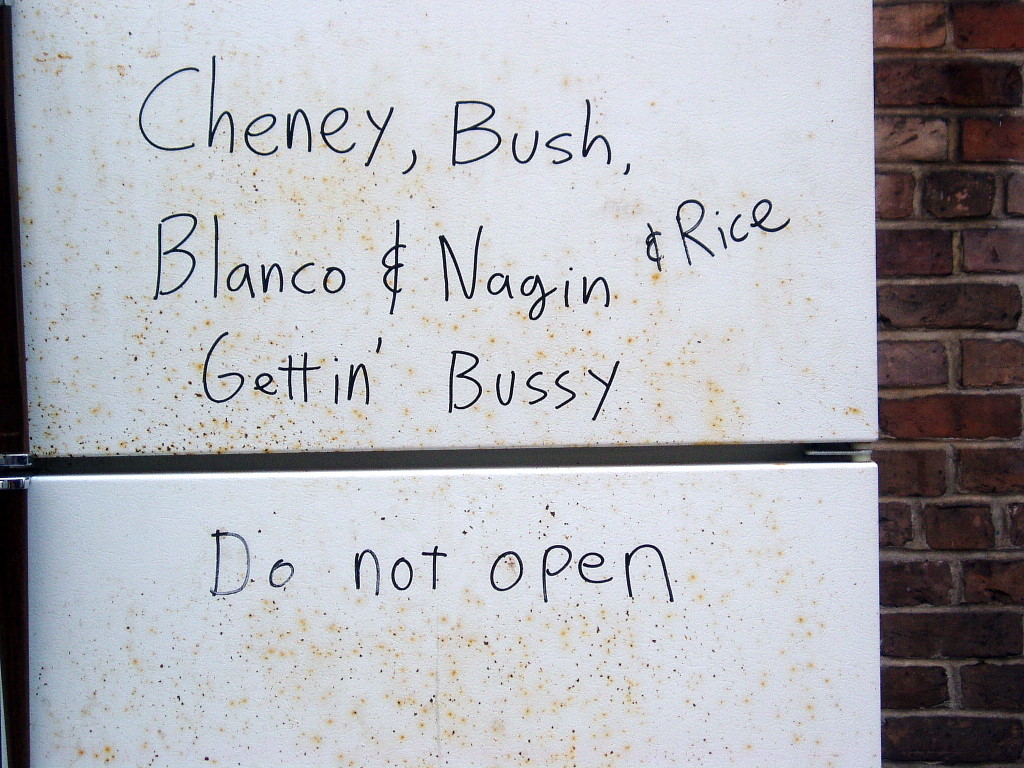 Cheney, Bush,
Blanco & Nagin & Rice
Gettin' Bussy
Do not open